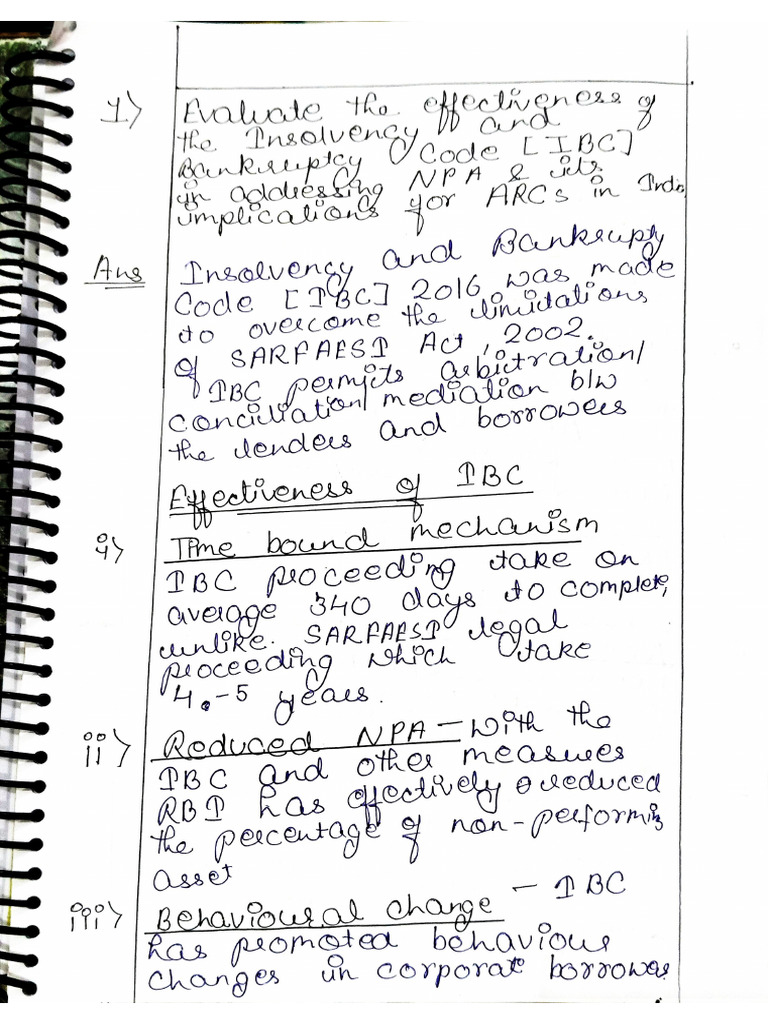 1) Evaluate the effectiveness of
the Insolvency and
Bankruptcy Code [IBC]
in addressing NPA & its
implications for ARCs in India
Ans Insolvency and Bankrupty
Code [IBC] 2016 was made
to overcome the limitations
of SARFAESI Act, 2002.
IBC permits arbitration/
conciliation/mediation b/w
the lenders and borrowers
Effectiveness of IBC
i) Time bound mechanism
IBC proceeding take on
average 340 days to complete,
unlike SARFAESI legal
proceeding which take
4-5 years.
ii) Reduced NPA - With the
IBC and other measures
RBI has effectively reduced
the percentage of non-performing
asset
iii) Behavioural change - IBC
has promoted behaviour
changes in corporate borrowers